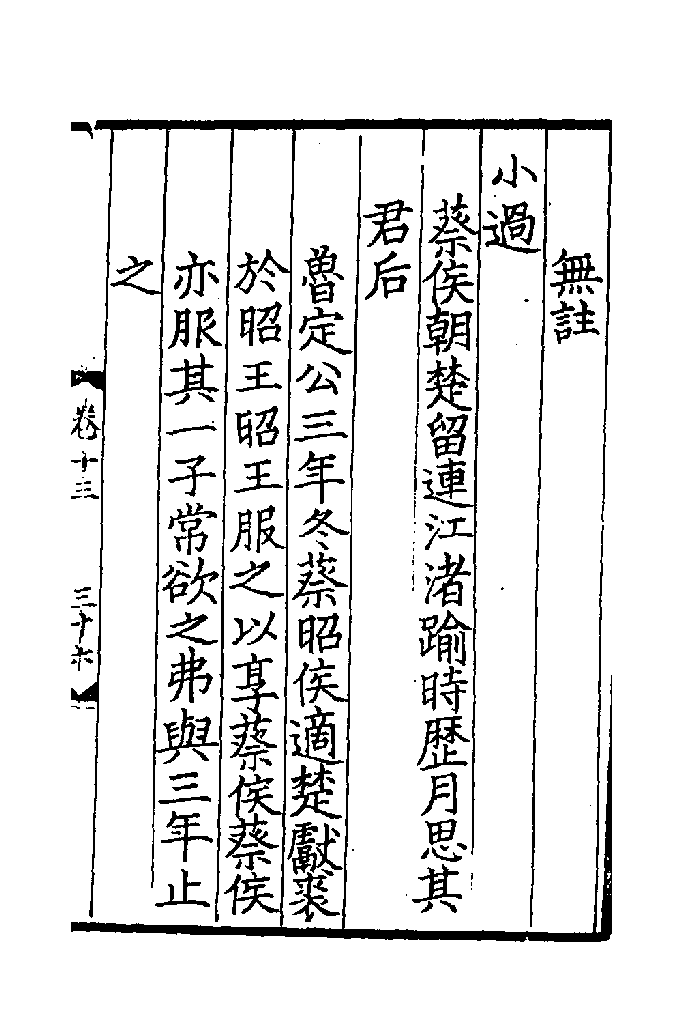 無註
小過
蔡侯朝楚留連江渚踰時歷月思其
君后
魯定公三年冬蔡昭侯適楚獻裘
於昭王昭王服之以享蔡侯蔡侯
亦服其一子常欲之弗與三年止
之
卷十三
三十六